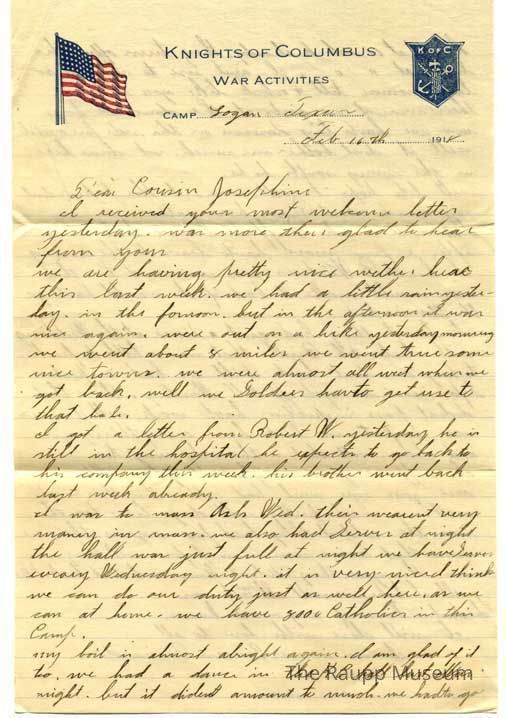 KNIGHTS OF COLUMBUS
WAR ACTIVITIES
K of C
CAMP Logan Texas
Feb 16th 1918
Dear Cousin Josephine
I received your most welcome letter
yesterday. was more then glad to hear
from you
we are having pretty nice wether hear
this last week. we had a little rain yester-
day. in the fornoon. but in the afternoon it was
nice again. were out on a hike yesterday morning
we went about 8 miles we went true some
nice towns. we were almost all wet when we
got back. well we Soldiers havto get use to
that
I got a letter from Robert W. yesterday he is
still in the hospital he expects to go back to
his company this week. his brother went back
last week already.
I was to mass Ash Wed. their weasent very
maney in mass. we also had Server at night
the hall was just full at night we have Server
every Wednesday night. it is very nice I think
we can do our duty just as well here, as we
can at home. we have 8000 Catholics in this
Camp.
my boil is almost alright again. I am glad of it
to. we had a dance in
The Raupp Museum
night. but it dident amount to much. we had to go